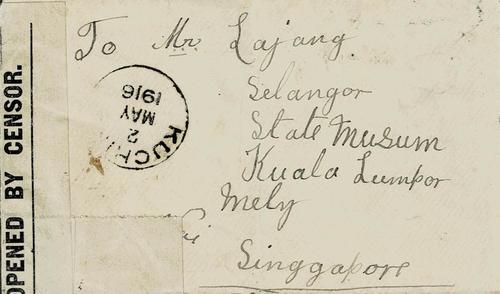 OPENED BY CENSOR.
To Mr Lajang
Selangor
State Musum
Kuala Lumpor
Mely
Singgapore
KUCHI
2
MAY
1916